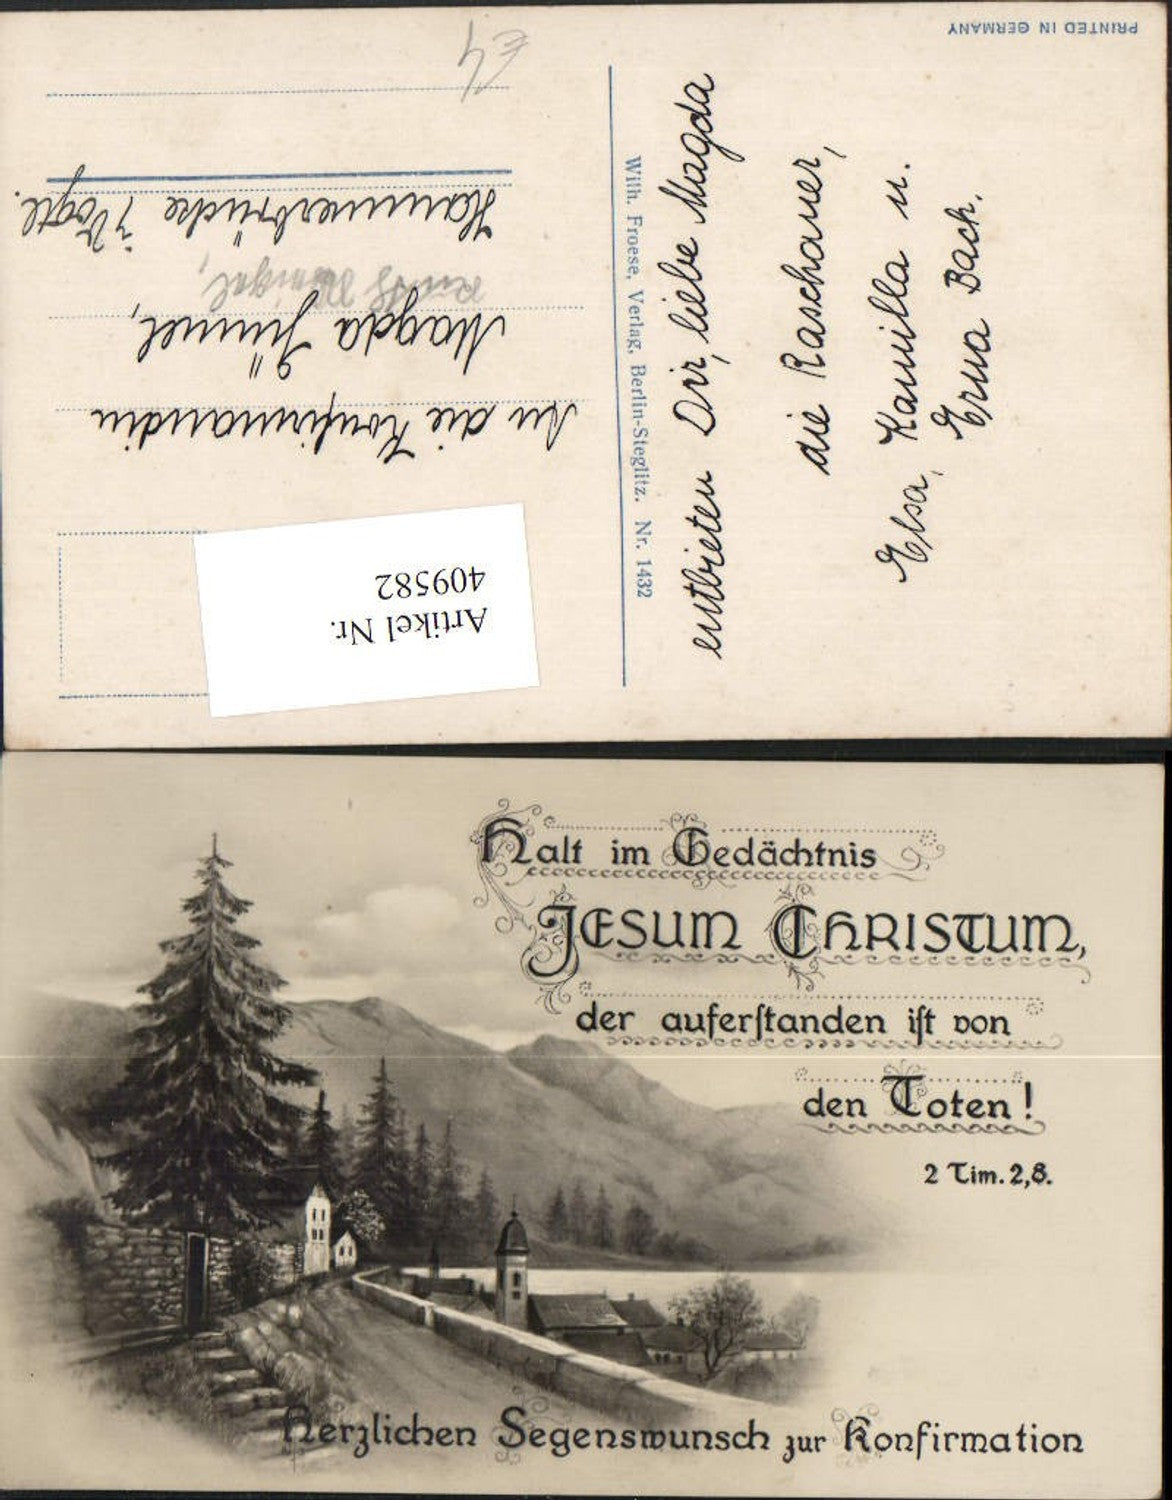 PRINTED IN GERMANY
An die Konfirmandin
Magda Jümmel,
Hammerbrücke i. Vogtl.
Wilh. Froese, Verlag, Berlin-Steglitz. Nr. 1432
entbieten Dir, liebe Magda
die Raschauer,
Elsa, Kamilla u.
Erna Bach.
Artikel Nr.
409582
Halt im Gedächtnis
JESUM CHRISTUM,
der auferſtanden iſt von
den Toten!
2 Tim. 2,8.
Herzlichen Segenswunsch zur Konfirmation